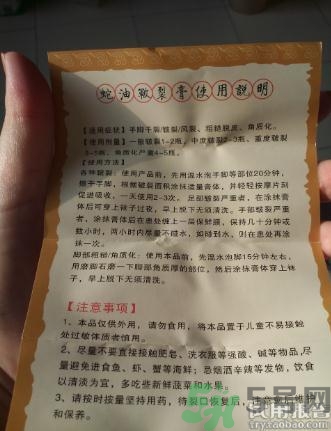 蛇油皲裂膏使用説明
【适用症状】手脚干裂/皲裂/风裂、粗糙脱皮、角质化。
【使用剂量】一般皲裂1-2瓶，中度皲裂2-3瓶，重度皲裂
3-5瓶，角质化严重4-5瓶。
【使用方法】
各种皲裂：使用产品前，先用温水泡手脚等部位20分钟，
擦干手脚，根据皲裂面积涂抹适量膏体，并轻轻按摩片刻
促进吸收，一天使用2-3次。足部皲裂严重者，在涂抹膏
体后可穿上袜子过夜，早上脱下无须清洗。手部皲裂严重
者，涂抹膏体后在患处缠上一层保鲜膜，保持几十分钟或
数小时，两小时内尽量不碰水，如碰到水，则在患处再涂
抹一次。
脚部粗糙/角质化：使用本品前，先温水泡脚15分钟左右，
用磨脚石磨一下脚部角质厚的部位，然后涂抹膏体穿上袜
子，早上脱下无须清洗。
【注意事项】
1、本品仅供外用，请勿食用，将本品置于儿童不易接触
处过敏体质者慎用。
2、尽量不要直接接触肥皂、洗衣服等强酸、碱等物品,尽
量避免进食鱼、虾、蟹等海鲜；忌烟酒辛辣等发物，饮食
以清淡为宜，多吃些新鲜蔬菜和水果。
3、请按时按量坚持用药，待裂口恢复后，注意愈后维护
和保养。
5号网
试用报告
try.taobao.com